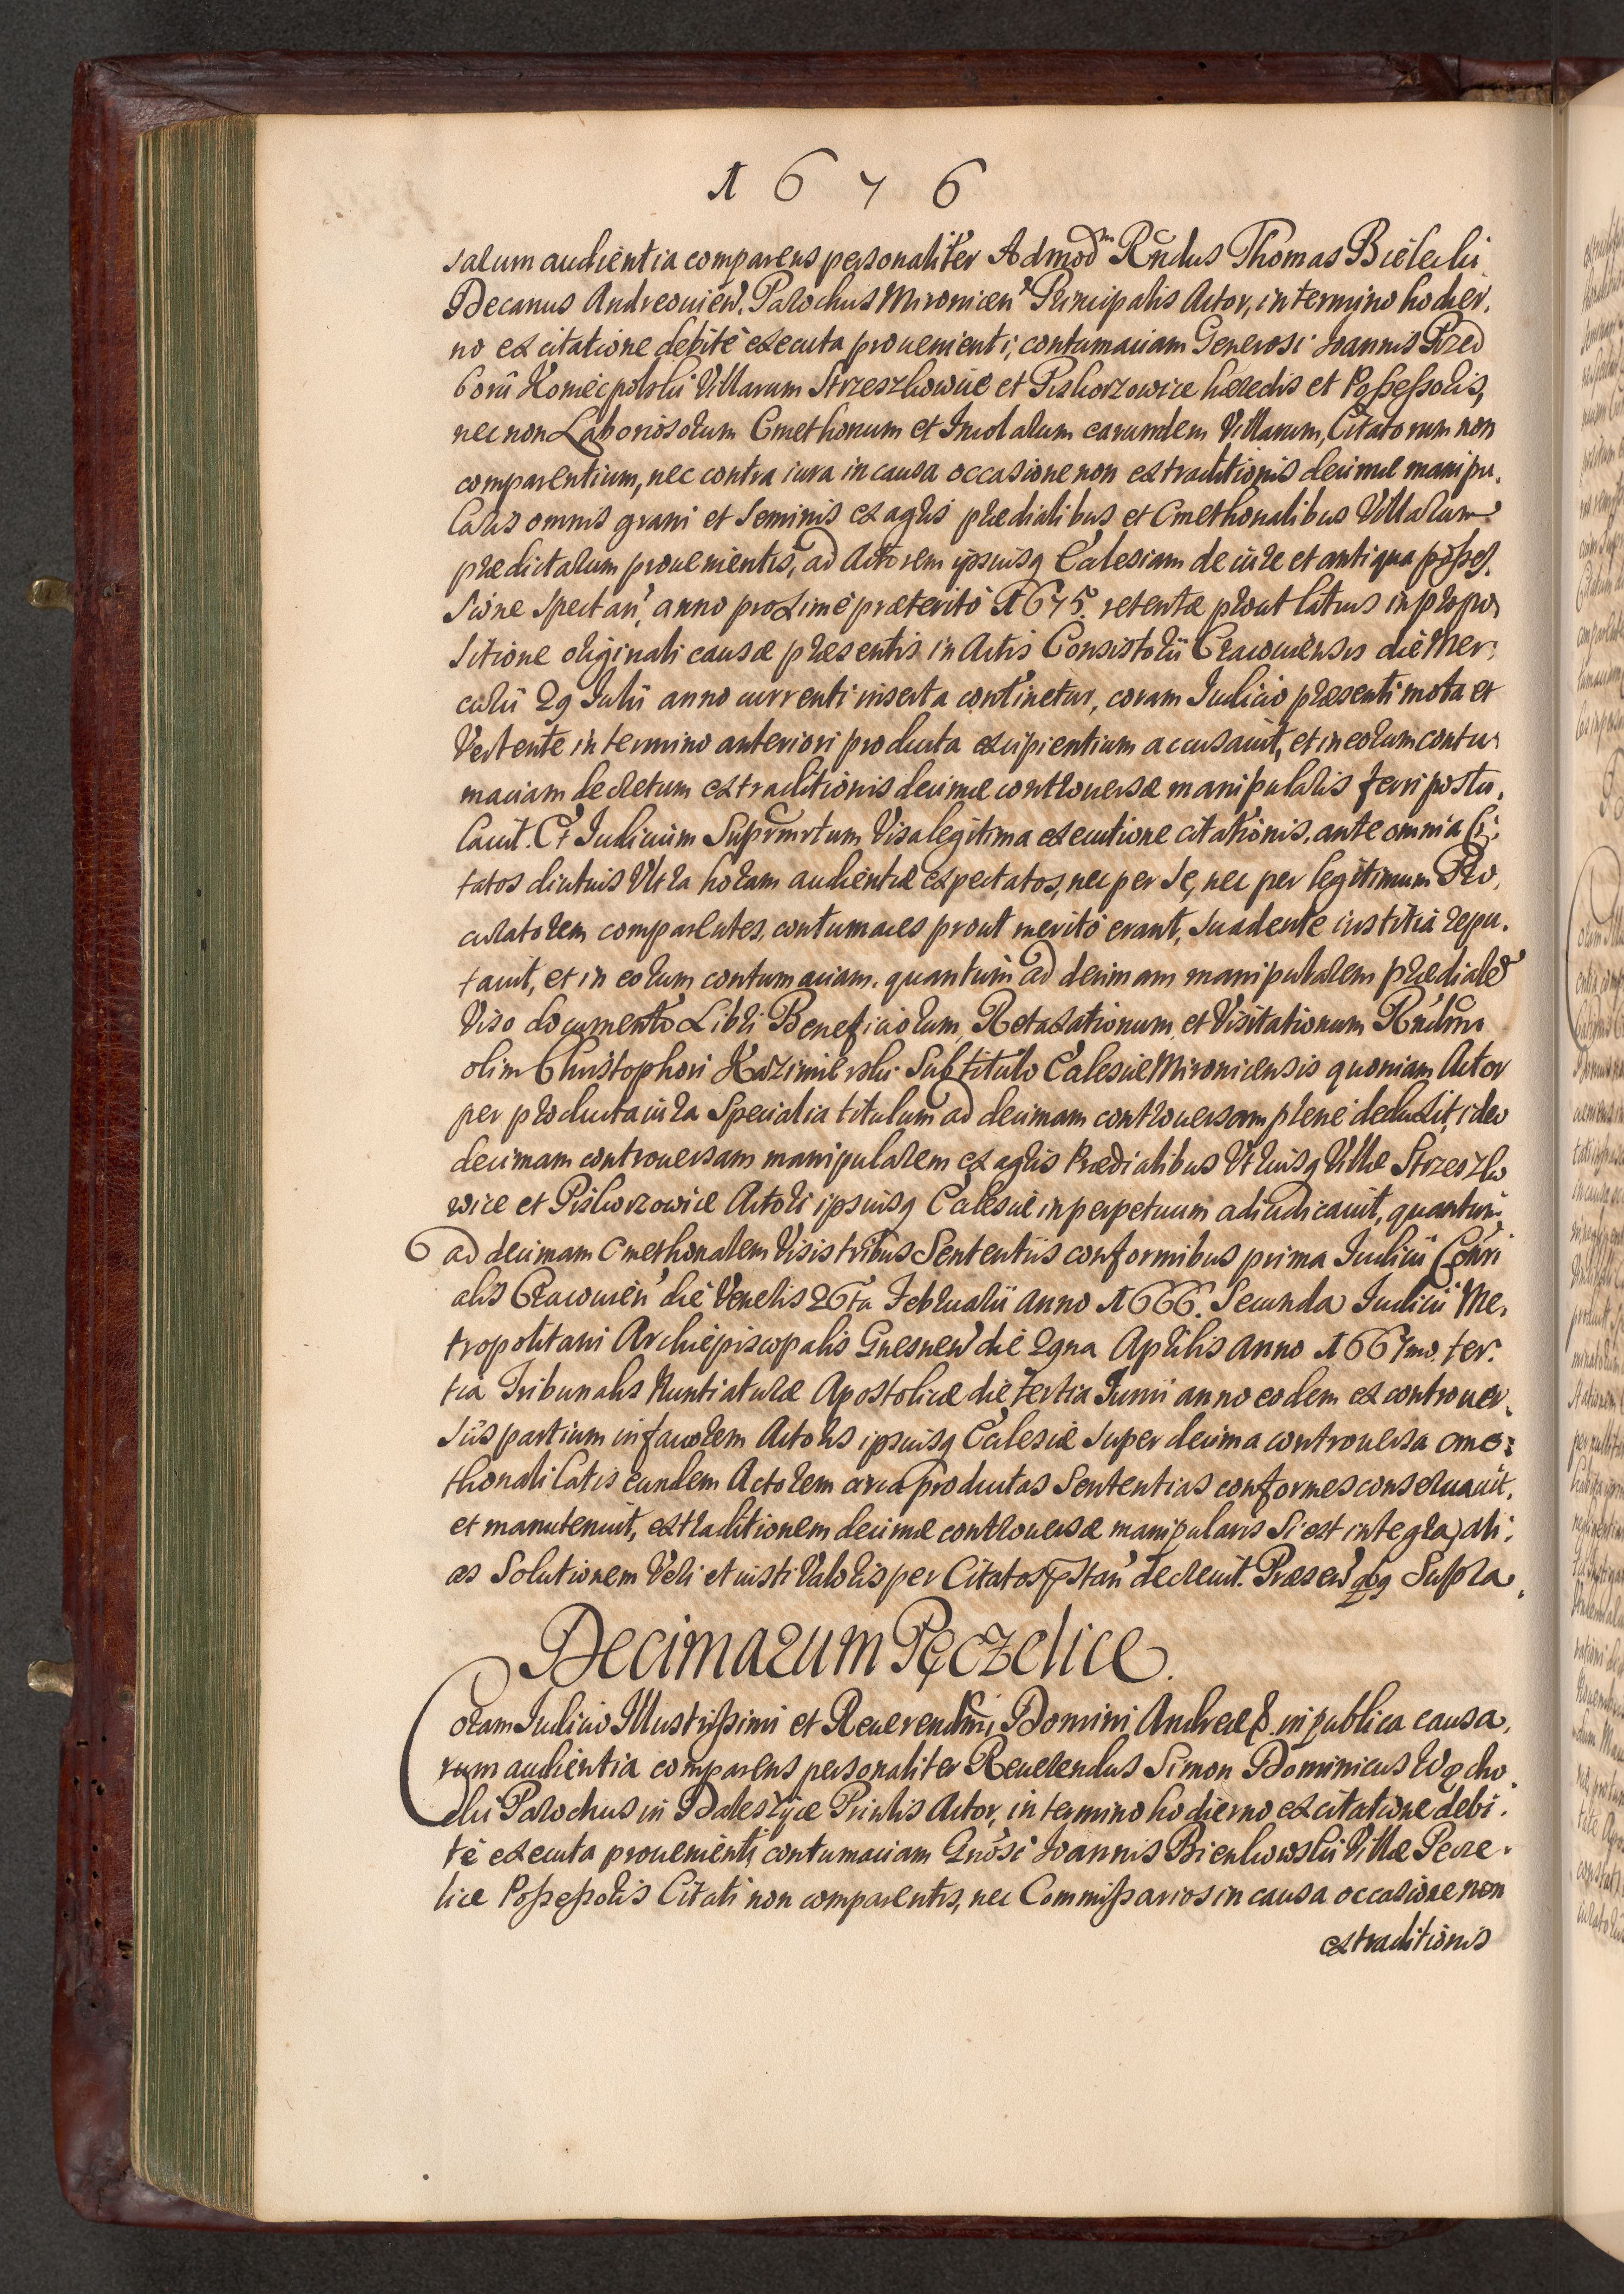 1676
salum audientia comparens personaliter Admod^m Rndus Thomas Bielecki
Decanus Andreouien. Parochus Mironicen Principalis Actor, in termino hodier,
no ex citatione debite executa prouenienti, contumaciam Generosi Joannis Przed
borij Koniecpolski Villarum Strzeszkowice et Piskorzowice hæredis et Possessoris,
nec non Laboriosorum Cmethonum et Incolarum earumdem Villarum, Citatorum non
comparentium, nec contra iura in causa occasione non extraditionis decimæ manipu,
laris omnis grani et Seminis ex agris prædialibus et Cmethonalibus Villarum
prædictarum prouenientis, ad Actorem ipsiusq Ecclesiam de iure et antiqua posses,
sione spectan, anno proxime præterito 1675. retentæ prout latius in propo,
sitione originali causæ præsentis in Actis Consistorij Cracouiensis die Mer,
curij 29 Julij anno currenti inserta continetur, coram Judicio præsenti mota et
Vertente in termino anteriori producta excipientium accusauit, et in eorum contu,
maciam decretum extraditionis decimæ controuersæ manipularis ferri postu,
lauit. Et Judicium Suprmrtum Visa legitima executione citationis, ante omnia Ci,
tatos diutius Ultra horam audientiæ expectatos, nec per se, nec per legitimum Pro,
curatorem comparentes, contumaces prout merito erant, suadente iustitia repu,
tauit, et in eorum contumaciam. quantum ad decimam manipularem prædialem
Viso documento Libri Beneficiorum, Retaxationum et Visitationum Rndmi
olim Christophori Kazimirski Sub titulo Ecclesiæ Mironicensis quoniam Actor
per producta iura Specialia titulum ad decimam controuersam plene deduxit, ideo
decimam controuersam manipularem ex agris Prædialibus Utriusq Villæ Strzeszko
wice et Piskorzowice Actori ipsiusq Ecclesiæ in perpetuum adiudicauit, quantum
ad decimam Cmethonalem Visis tribus Sententijs conformibus prima Judicij Cauri
alis Cracouien die Veneris 26ta Februarij Anno 1666. Secunda Judicij Me,
tropolitani Archiepiscopalis Gnesnen die 29na Aprilis Anno 1667mo. ter,
tia Tribunalis Nuntiaturæ Apostolicæ die tertia Junij anno eodem ex controuer,
sijs partium in fauorem Actoris ipsiusq Ecclesiæ super decima controuersa cme,
thonali latis eundem Actorem circa productas Sententias conformes conseruauit,
et manutenuit, extraditionem decimæ controuersæ manipularis si est integra, ali,
as Solutionem Veri et iusti Valoris per Citatos præstan decreuit. Præsen qbq Supra,
Decimarum Pęczelice
Coram Judicio Illustrissimi et Reuerendmi Domini Andreæ &. in publica causa,
rum audientia comparens personaliter Reuerendus Simon Dominicus Wącho
cki Parochus in Daleszyce Prinlis Actor, in termino hodierno ex citatione debi,
te executa prouenienti contumaciam Gnosi Joannis Bienkowskij Villæ Pecze,
lice Possessoris Citati non comparentis, nec Commissarios in causa occasione non
extraditionis